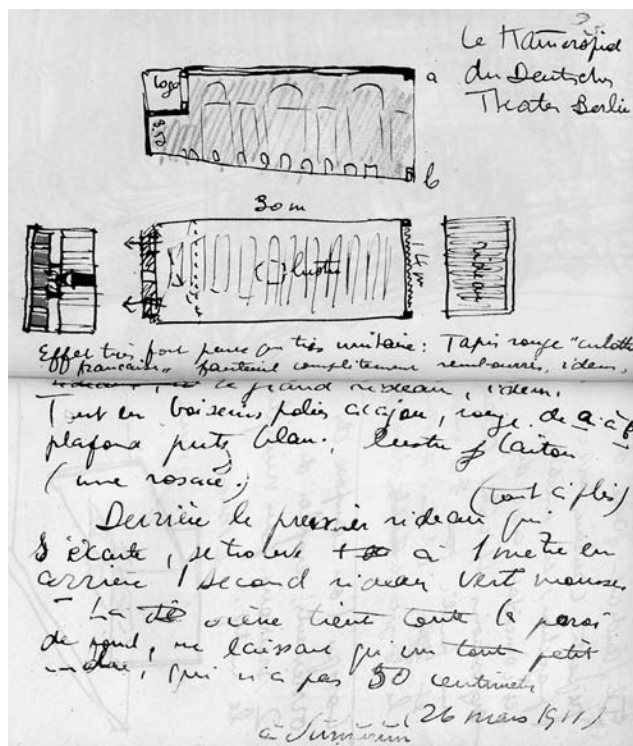 23
Le Kamerspiel
du Deutsches
Theater Berlin
loge
3.50
a
b
30 m
14 m
lustre
rideau
Effet très fort parce que très unitaire : Tapis rouge "culotte
française" fauteuil complètement rembourrés, idem,
le grand rideau, idem.
Tout en boiseries polies acajou, rouge. de a à b
plafond putz blanc; lustre laiton
(une rosace)
(tout à plis)
Derrière le premier rideau qui
s'écarte, se trouve à 1 mètre en
arrière 1 second rideau vert mousse
– La scène tient toute la paroi
de fond, ne laissant qu'un tout petit
qui n'a pas 50 centimets
(26 mars 1911)
à Sumurun